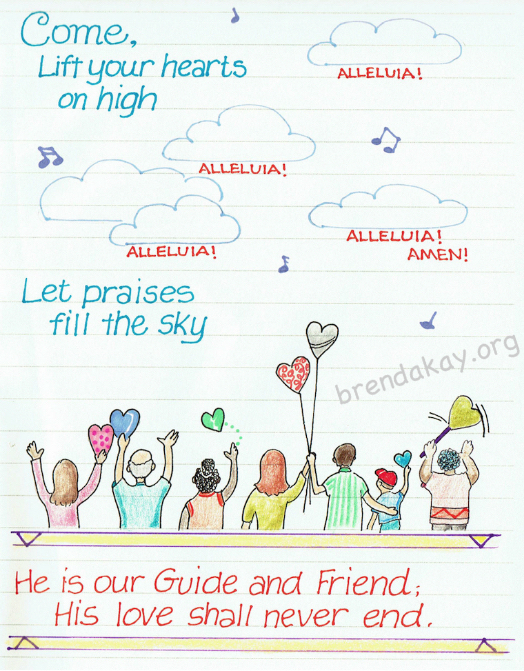 Come,
Lift your hearts
on high
ALLELUIA!
ALLELUIA!
ALLELUIA!
ALLELUIA!
AMEN!
Let praises
fill the sky
brendakay.org
He is our Guide and Friend;
His love shall never end.